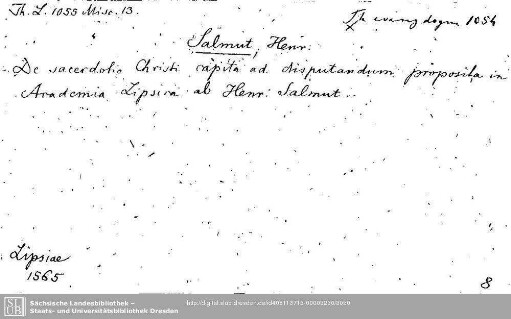 Th. L. 1055 Misc. 13.
Th evang dogm 1054
Salmut, Henr.
De sacerdotio Christi capita ad disputandum proposita in
Academia Lipsica ab Henr. Salmut.
Lipsiae
1565
8
Sächsische Landesbibliothek –
Staats- und Universitätsbibliothek Dresden